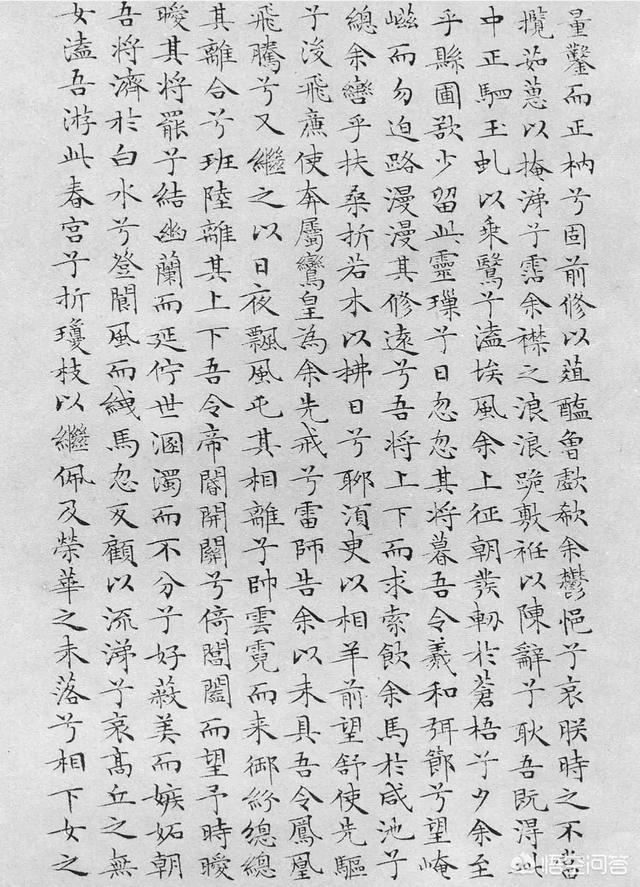 量鑿而正枘兮固前修以菹醢曾歔欷余鬱悒兮哀朕時之不當
攬茹蕙以掩涕兮霑余襟之浪浪跪敷衽以陳辭兮耿吾既得此
中正駟玉虬以乘鷖兮溘埃風余上征朝發軔於蒼梧兮夕余至
乎縣圃欲少留此靈璅兮日忽忽其將暮吾令羲和弭節兮望崦
嵫而勿迫路漫漫其修遠兮吾將上下而求索飲余馬於咸池兮
總余轡乎扶桑折若木以拂日兮聊須臾以相羊前望舒使先驅
兮後飛廉使奔屬鸞皇為余先戒兮雷師告余以未具吾令鳳凰
飛騰兮又繼之以日夜飄風屯其相離兮帥雲霓而来御紛總總
其離合兮班陸離其上下吾令帝閽開關兮倚閶闔而望予時曖
曖其將罷兮結幽蘭而延佇世溷濁而不分兮好蔽美而嫉妬朝
吾將濟於白水兮登閬風而緤馬忽反顧以流涕兮哀高丘之無
女溘吾游此春宮兮折瓊枝以繼佩及榮華之未落兮相下女之
悟空问答